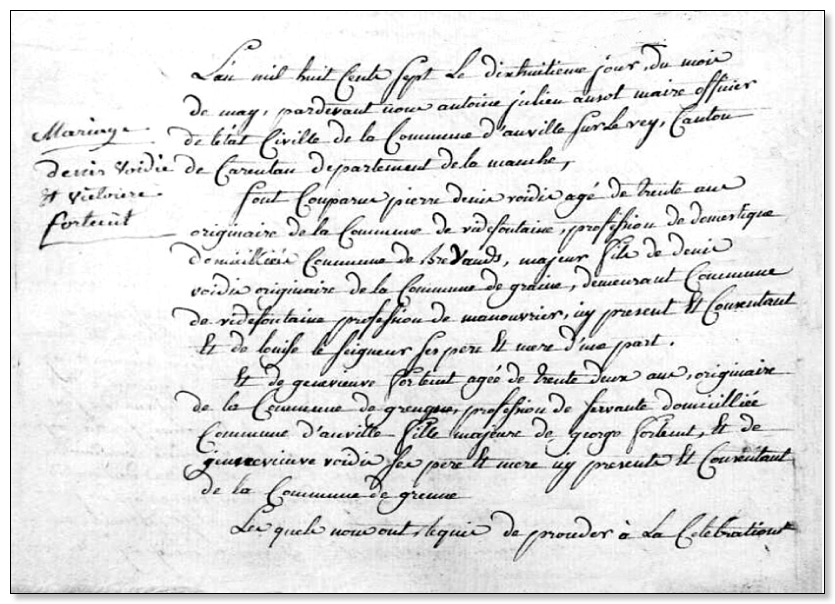 Mariage
denis Voidie
et victoire
fortent
L'an mil huit Cents sept Le dixhuitieme jour du mois
de may, pardevant nous antoine julien ausot maire officier
de l'état Civille de la Commune d'auville sur le vey, Canton
de Carentan departement de la manche,
Sont Comparus pierre denis voidie agé de trente ans
originaire de la Commune de videfontaine, profession de domestique
domicilliée Commune de Brevands, majeur fils de denis
voidie originaire de la Commune de graine, demeurant Commune
de videfontaine profession de manouvrier, icy present Et Consentant
Et de louise le seigneur ses pere Et mere d'une part,
Et de genevieuve fortent agée de trente deux ans, originaire
de la Commune de profession de servante domicilliée
Commune d'auville fille majeure de george fortent, Et de
voidie ses pere Et mere icy presents Et Consentant
de la Commune de
Les quels nous ont requis de proceder à La Celebration